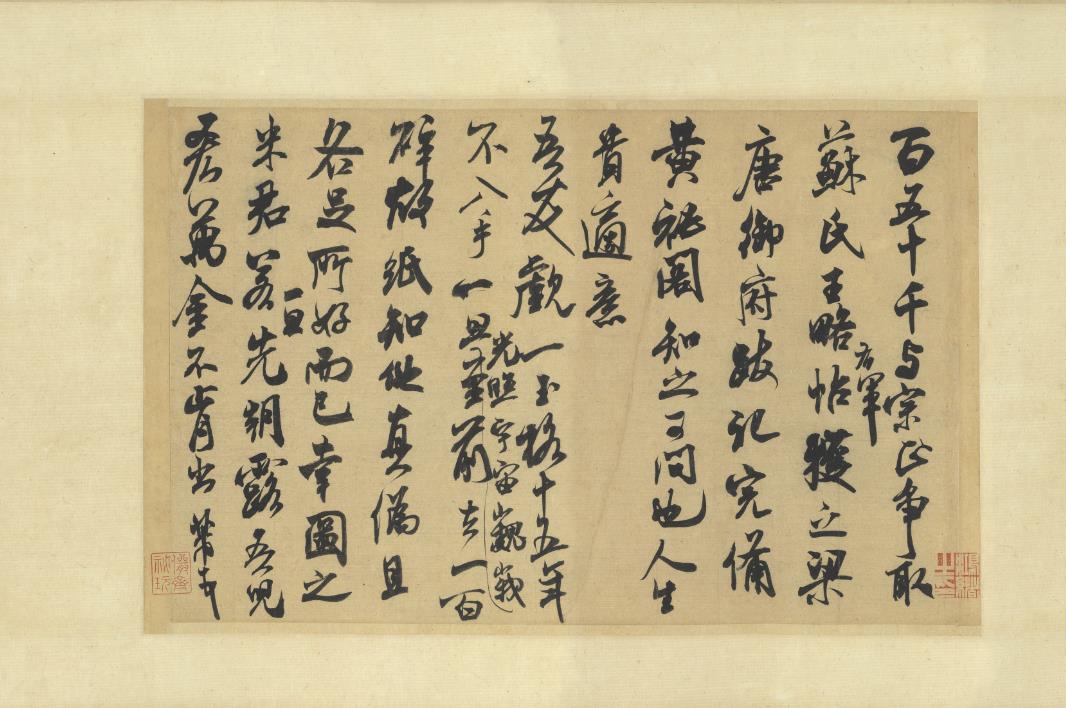 百五十千与宗正爭取
蘇氏王略帖右軍獲之梁
唐御府跋記完備
黃秘閣知之可問也人生
貴適意
吾友覷一玉格十五年
不入手一旦光照宇宙巍峩至前去一百
碎故紙知他真偽且
各足所好而已幸圖之
米君若一旦先朝露吾兒
吝萬金不肯出芾頓首